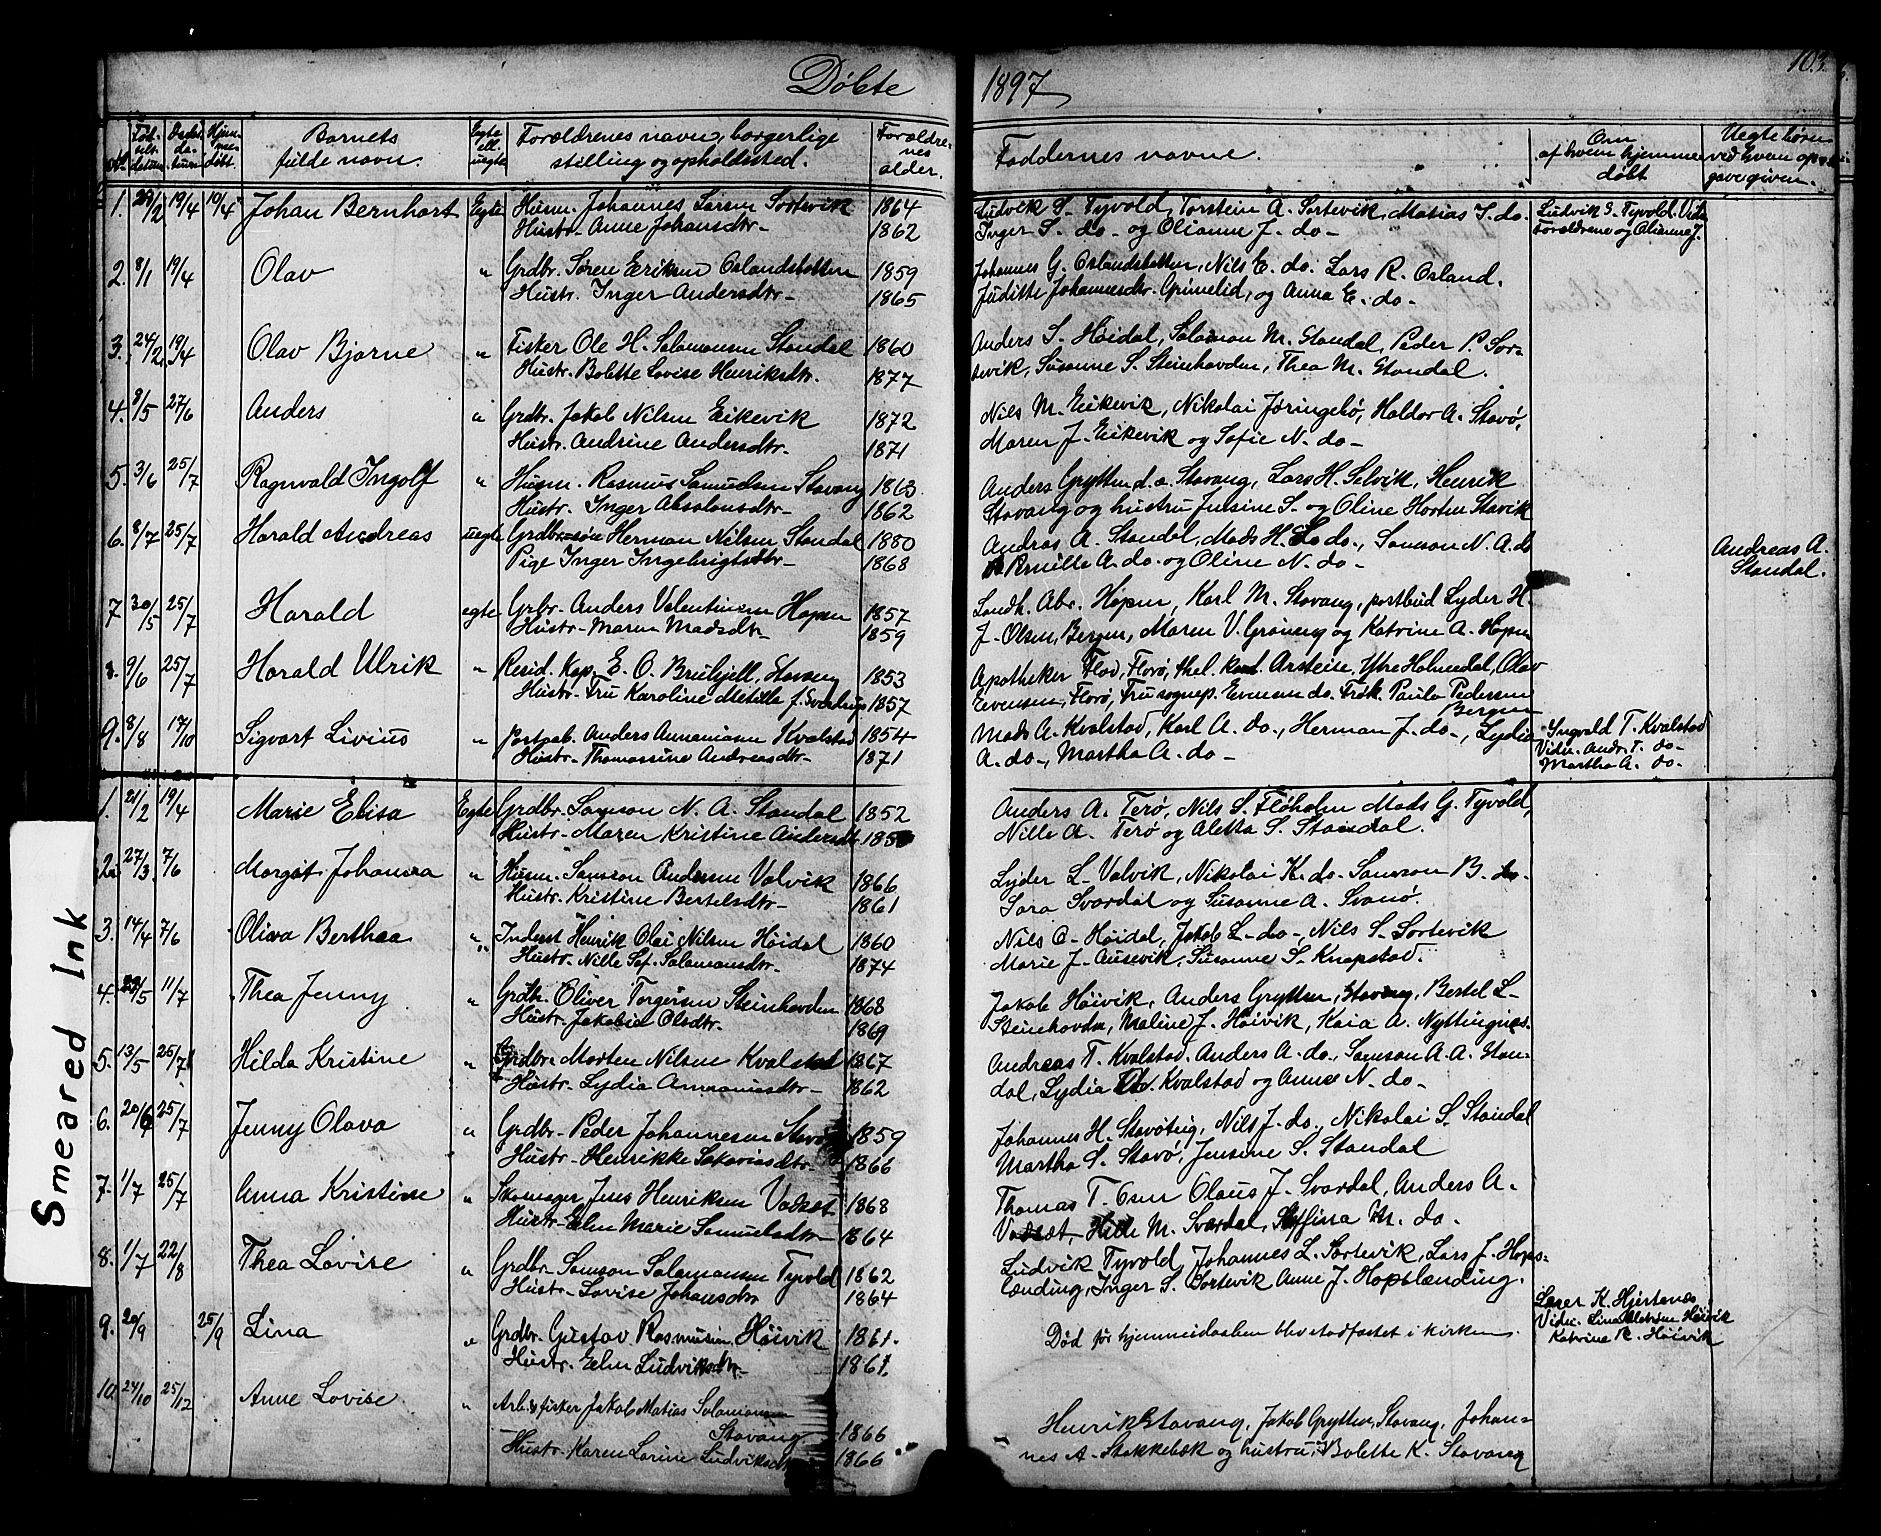 Døbte 1897 103.
No. Fød-selsdatum Daabs-datum Hjem-medøbt. Barnets fulde navn. Egte ell. uegte Forældrenes navn, borgerlige stilling og opholdssted. Forældre-nes alder. Faddernes navne. Om af hvem hjemme-døbt Uegte børn ved hvem opgave given.
1. 2/2 19/4 10/4 Johan Bernhart Egte Husm. Johannes Larsen Sortevik 1864 Ludvik S. Tyvold, Torstein A. Sortevik, Matias J. do. Ludvik S. Tyvold. Vidn.
Hustr. Anne Johansdtr. 1862 Inger S. do. og Olianne J. do. Forældrene og Olianne J.
2. 8/1 19/4 Olav " Grdbr. Søren Eriksen Oslandsbotten 1859 Johannes G. Oslandsbotten, Nils E. do. Lars R. Osland.
Hustr. Inger Andersdtr. 1865 Juditte Johannesdtr. Grimelid, og Anna E. do.
3. 24/2 19/4 Olav Bjarne " Fisker Ole H. Salamonsen Standal 1860 Anders S. Høidal, Salamon M. Standal, Peder P. Sor-
Hustr. Bolette Lovise Henriksdtr. 1877 tevik, Susanne S. Steinhovden, Thea M. Standal.
4. 8/5 27/6 Anders " Grdbr. Jakob Nilsen Eikevik 1872 Nils M. Eikevik, Nikolai Jøringebø, Haldor A. Stavø,
Hustr. Andrine Andersdtr. 1871 Maren J. Eikevik og Sofie N. do.
5. 3/6 25/7 Ragnvald Ingolf " Husm. Rasmus Samuelsen Stavang 1863 Anders Grytten d.a. Stavang, Lars H. Selvik, Henrik
Hustr. Inger Absalonsdtr. 1862 Stavang og hustru Jensine S. og Oline Horten Stavik
6. 8/7 25/7 Harald Andreas uegte Grdbr.søn Herman Nilsen Standal 1880 Andras A. Standal, Mads H. S. do., Samson N. A. do Andreas A.
Pige Inger Ingebrigtsdtr. 1868 Pernille A. do. og Oline N. do. Standal.
7 30/5 25/7 Harald egte Grbr. Anders Valentinsen Hopen 1857 Landh. Abr. Hopen, Karl M. Stavang, postbud Lyder H.
Hustr. Maren Madsdtr. 1859 J. Olsen, Bergen, Maren V. Grøneng og Katrine A. Hopen
8. 9/6 25/7 Harald Ulrik " Resid. Kap. E. O. Bruhjell, Stavang 1853 Apotheker Flod, Florø, Arsteise, Ytre Holmedal, Olav
Hustr. Fru Karoline Metilla f. Sverdrup 1857 Evensen, Florø, Fru sognep. Evensen do. Frøk. Paula Pedersen
Bergen
9. 8/8 17/10 Sigvart Livius " Postaab. Anders Ananiasen Kvalstad 1854 Mads A. Kvalstad, Karl A. do., Herman J. do., Lydia Ingvald T. Kvalstad
Hustr. Thomassine Andreasdtr. 1871 A. do., Martha A. do Vidn. Andr. T. do.
Martha A. do.
1. 21/2 19/4 Marie Elisa Egte Grdbr. Samson N. A. Standal 1852 Anders A. Terø, Nils S. Fløholm Mads G. Tyvold,
Hustr. Maren Kristine Andersdtr. Nille A. Terø og Aletta S. Standal.
2. 27/3 7/6 Margit Johanna " Husm. Samson Andersen Valvik 1866 Lyder L. Valvik, Nikolai K. do. Samson B. do.
Hustr. Kristine Bertelsdtr. 1861 Sara Svardal og Susanne A. Svanø.
3. 14/4 7/6 Oliva Berthea " Inderst Henrik Olai Nilsen Høidal 1860 Nils O. Høidal, Jakob L. do., Nils S. Sortevik
Hustr. Nille Sof. Salamonsdtr. 1874 Marie J. Ausevik, Susanne S. Knapstad.
4. 11/7 Thea Jenny " Grdb. Oliver Torgersen Steinhovden 1868 Jakob Høivik, Anders Grytten, Stavang, Bertel L.
Hustr. Jakobia Olsdtr. 1869 Steinhovden, Maline J. Høivik, Kaia A. Nyttingnes.
5. 13/5 25/7 Hilda Kristine " Grdbr. Morten Nilsen Kvalstad 1867 Andreas T. Kvalstad. Anders A. do., Samson A. A. Stan-
Hustr. Lydia Annaniasdtr. 1862 dal, Lydia Th. Kvalstad og Anne N. do.
6. 20/6 25/7 Jenny Olava " Grdbr. Peder Johannesen Stavø 1859 Johannes H. Stavøteig, Nils J. do., Nikolai S. Standal
Hustr. Henrikke Sakariasdtr. 1866 Martha S. Stavø, Jensine S. Standal
7. 1/7 25/7 Anna Kristine " Skomager Jens Henriksen Vadset 1868 Thomas T. Osen Olaus J. Svardal, Anders A.
Hustr. Elen Marie Samuelsdtr. 1864 Vadset, Hilde M. Svardal, Steffina M. do.
8. 1/7 22/8 Thea Lovise " Grdbr. Samson Salamonsen Tyvold 1862 Ludvik Tyvold, Johannes L. Sortevik, Lars J. Hops-
Hustr. Lovise Johansdtr 1864 lænding, Inger S. Sortevik Anne J. Hopslænding.
9. 20/9 25/9 Lina " Grdbr. Gustav Rasmussen Høivik 1861. Død før hjemmedaaben blev stadfæstet i kirken. Lærer K. Hjertenæs
Hustr. Elen Ludviksdtr. 1861. Vidn. Lina Høivik
Katrine R. Høivik
10 24/10 25/12 Anne Lovise " Arb. & fisker Jakob Matias Salamonsen
Stavang 1866 Henrik Stavang, Jakob Grytten, Stavang, Johan-
Hustr. Karen Larine Ludviksdtr 1866 nes A. Stokkebæk og hustru, Bolette K. Stavang
Smeared Ink